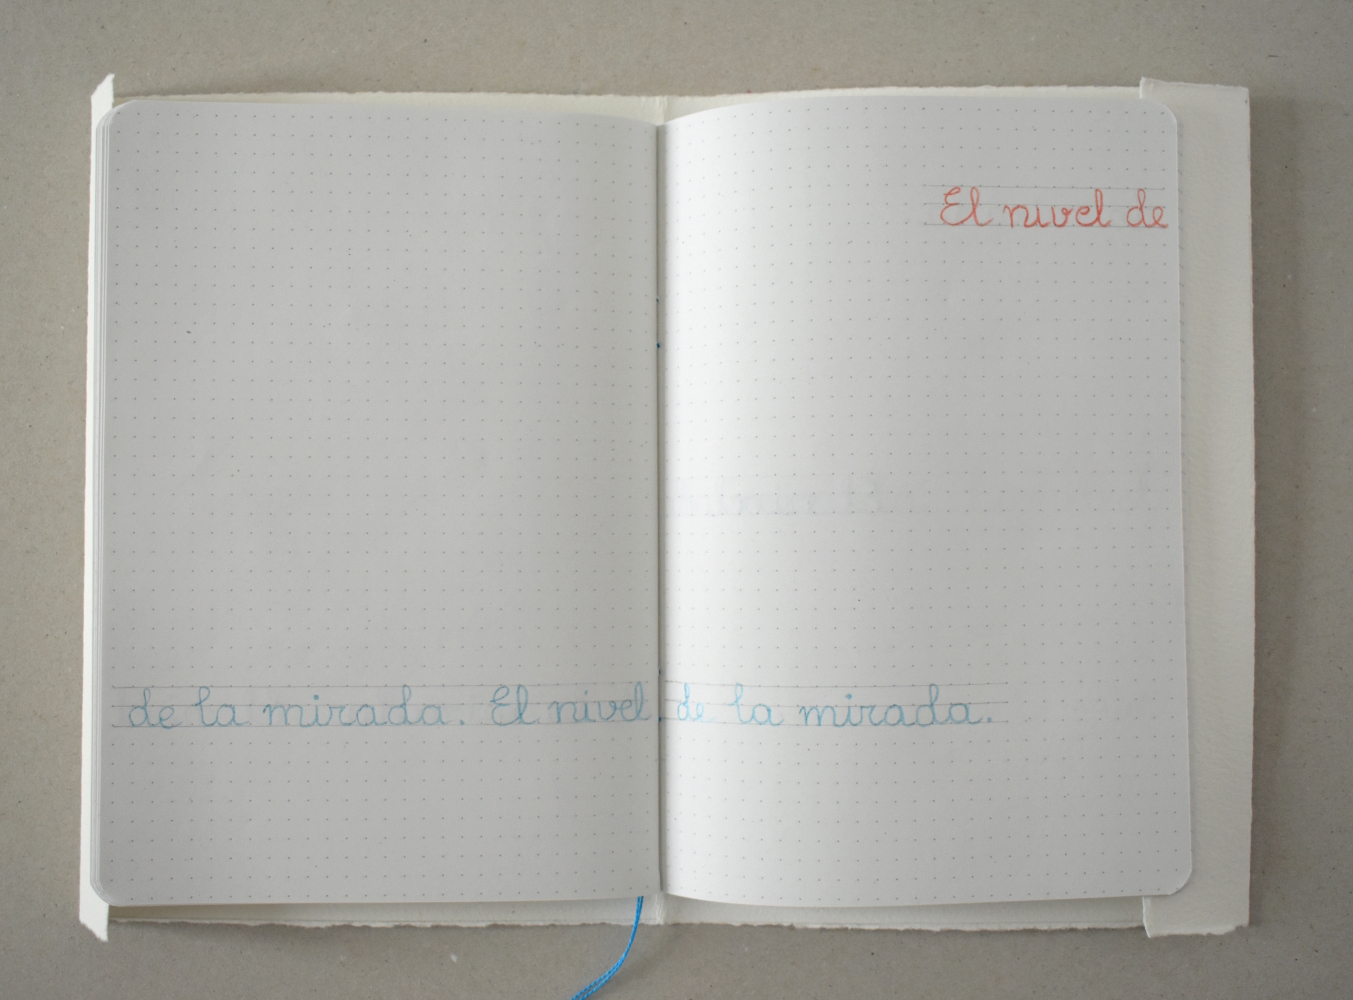 El nivel de
de la mirada. El nivel de la mirada.